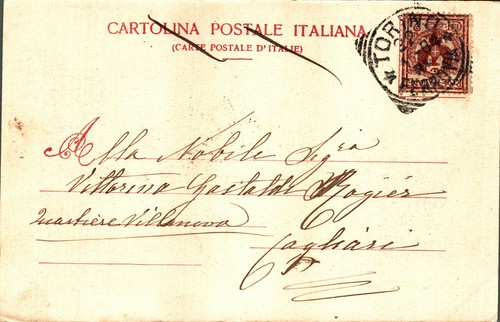 CARTOLINA POSTALE ITALIANA
(CARTE POSTALE D'ITALIE)
TORINO
Alla Nobile Sig.ra
Vittorina Gastaldi Rogier
Quartiere Villanova
Cagliari